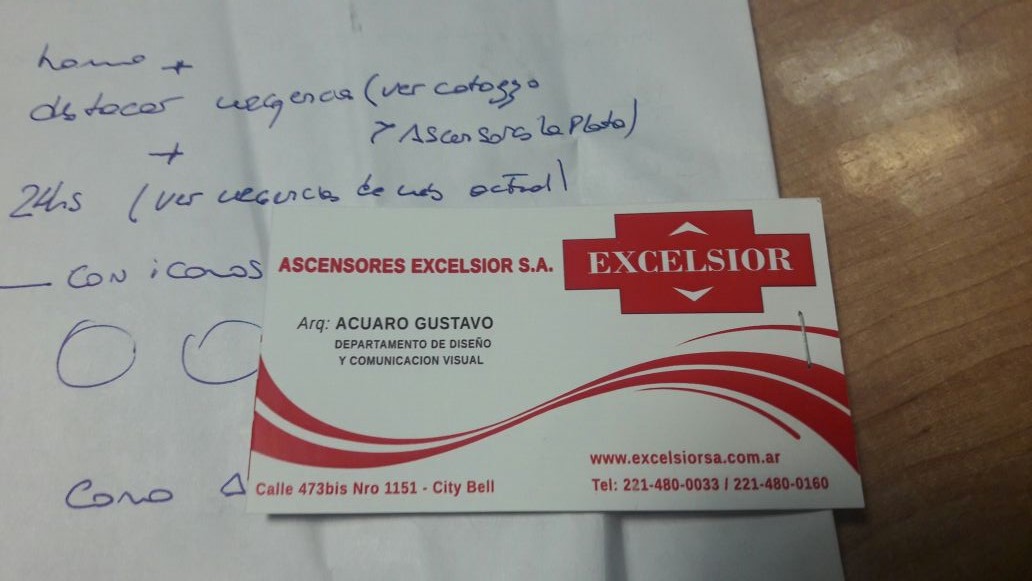 home +
destacar urgencia (ver cotozzo
y Ascensores la Plata)
+
24hs (ver urgencias de web actual)
— con iconos
Como A
ASCENSORES EXCELSIOR S.A.
EXCELSIOR
Arq: ACUARO GUSTAVO
DEPARTAMENTO DE DISEÑO
Y COMUNICACION VISUAL
www.excelsiorsa.com.ar
Calle 473bis Nro 1151 - City Bell
Tel: 221-480-0033 / 221-480-0160